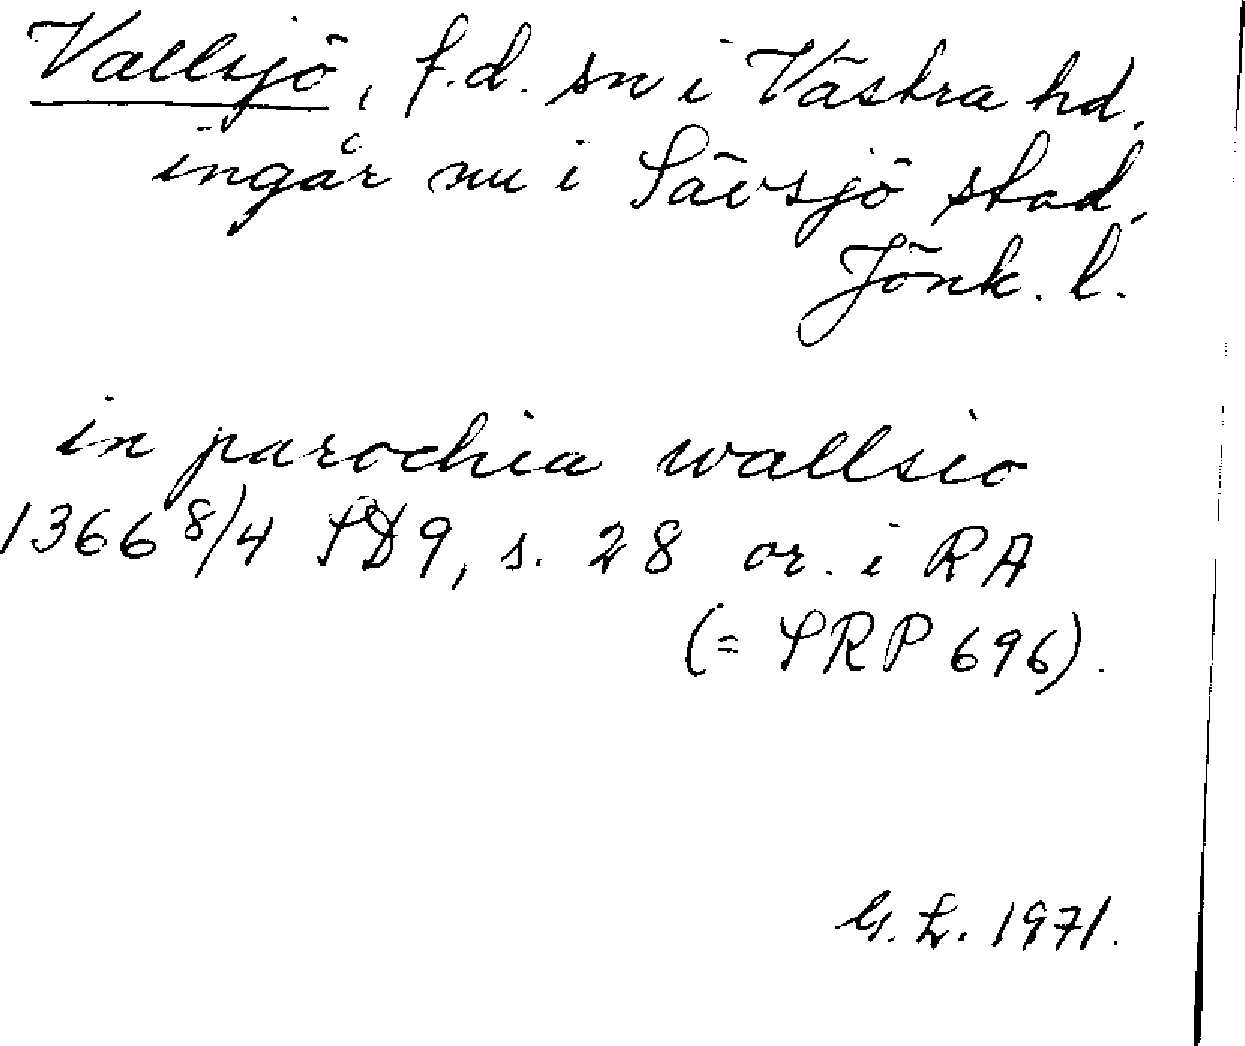 Vallsjö, f.d. sn i Västra hd,
ingår nu i Sävsjö stad,
Jönk. l.
in parochia wallsio
1366 8/4 SD 9, s. 28 or. i RA
(= SRP 696).
G. L. 1971.